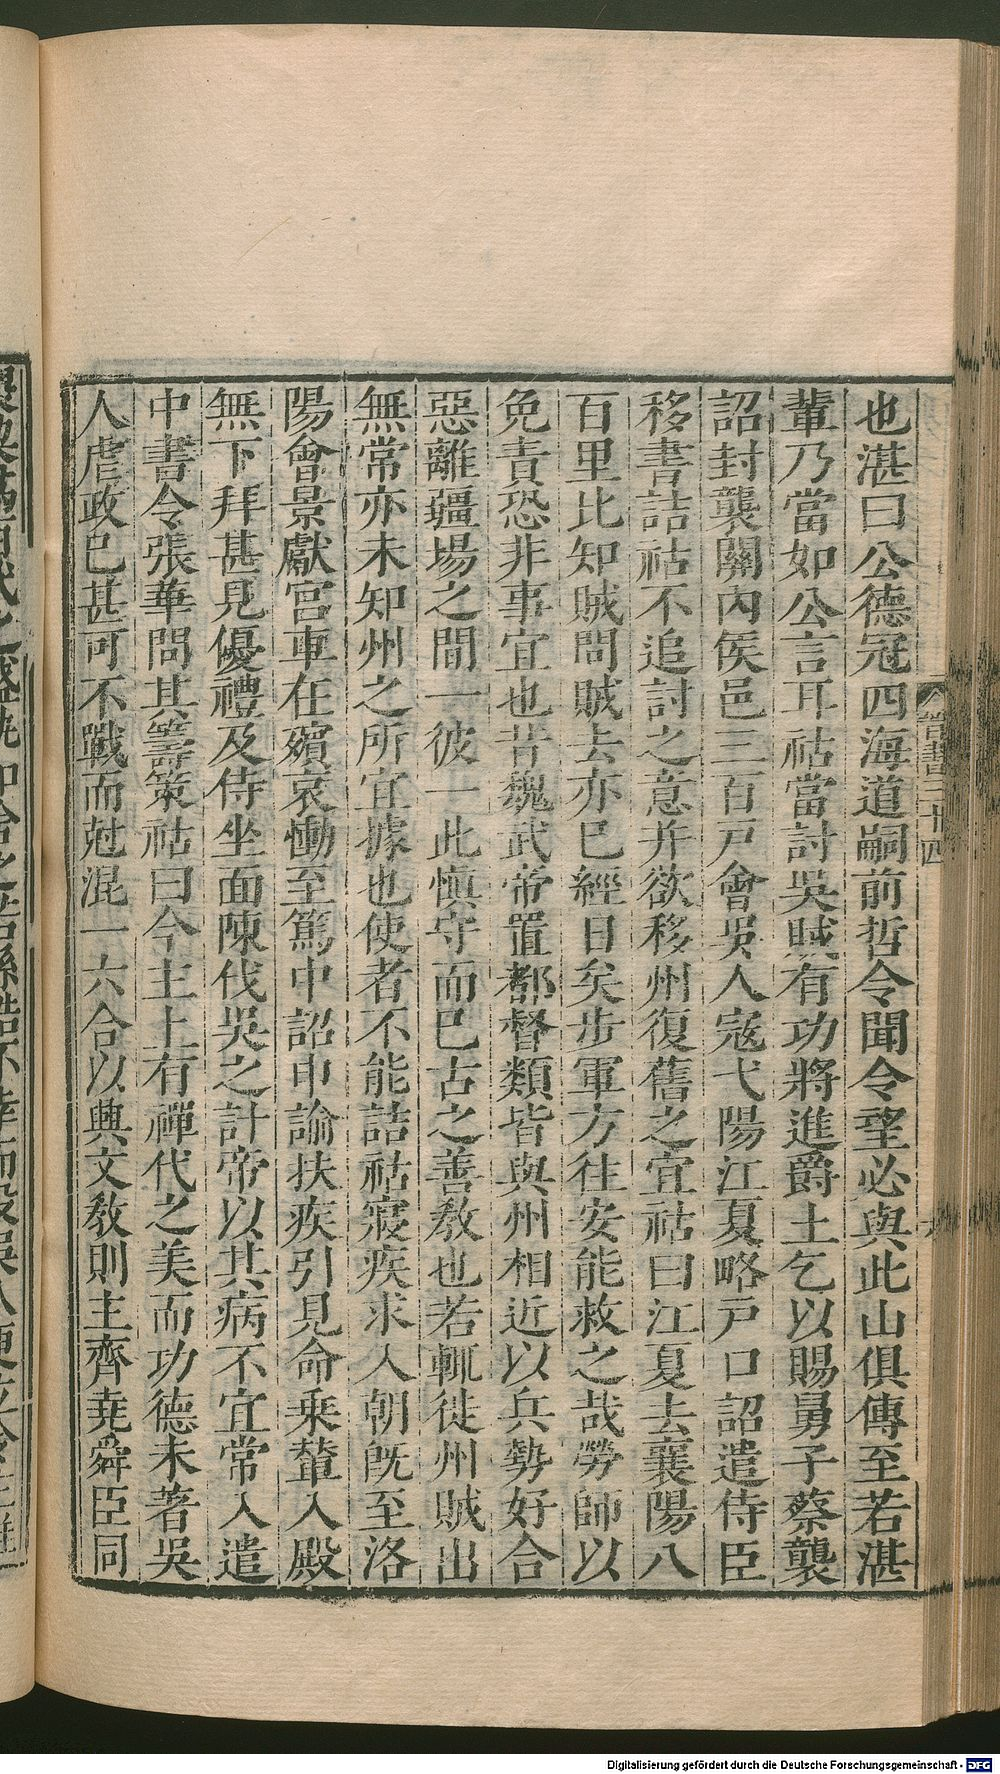 也湛曰公德冠四海道嗣前哲令聞令望必與此山俱傳至若湛
輩乃當如公言耳祜當討吳賊有功將進爵土乞以賜舅子蔡襲
詔封襲關內侯邑三百戶會吳人寇弋陽江夏略戶口詔遣侍臣
移書詰祜不追討之意并欲移州復舊之宜祜曰江夏去襄陽八
百里比知賊問賊去亦已經日矣步軍方往安能救之哉勞師以
免責恐非事宜也昔魏武帝置都督類皆與州相近以兵勢好合
惡離疆場之間一彼一此慎守而已古之善教也若輒徙州賊出
無常亦未知州之所宜據也使者不能詰祜寢疾求入朝既至洛
陽會景獻宮車在殯哀慟至篤中詔申諭扶疾引見命乘輦入殿
無下拜甚見優禮及侍坐面陳伐吳之計帝以其病不宜常入遣
中書令張華問其籌策祜曰今主上有禪代之美而功德未著吳
人虐政已甚可不戰而尅混一六合以興文教則主齊堯舜臣同
晉書三十四
Digitalisierung gefördert durch die Deutsche Forschungsgemeinschaft - DFG